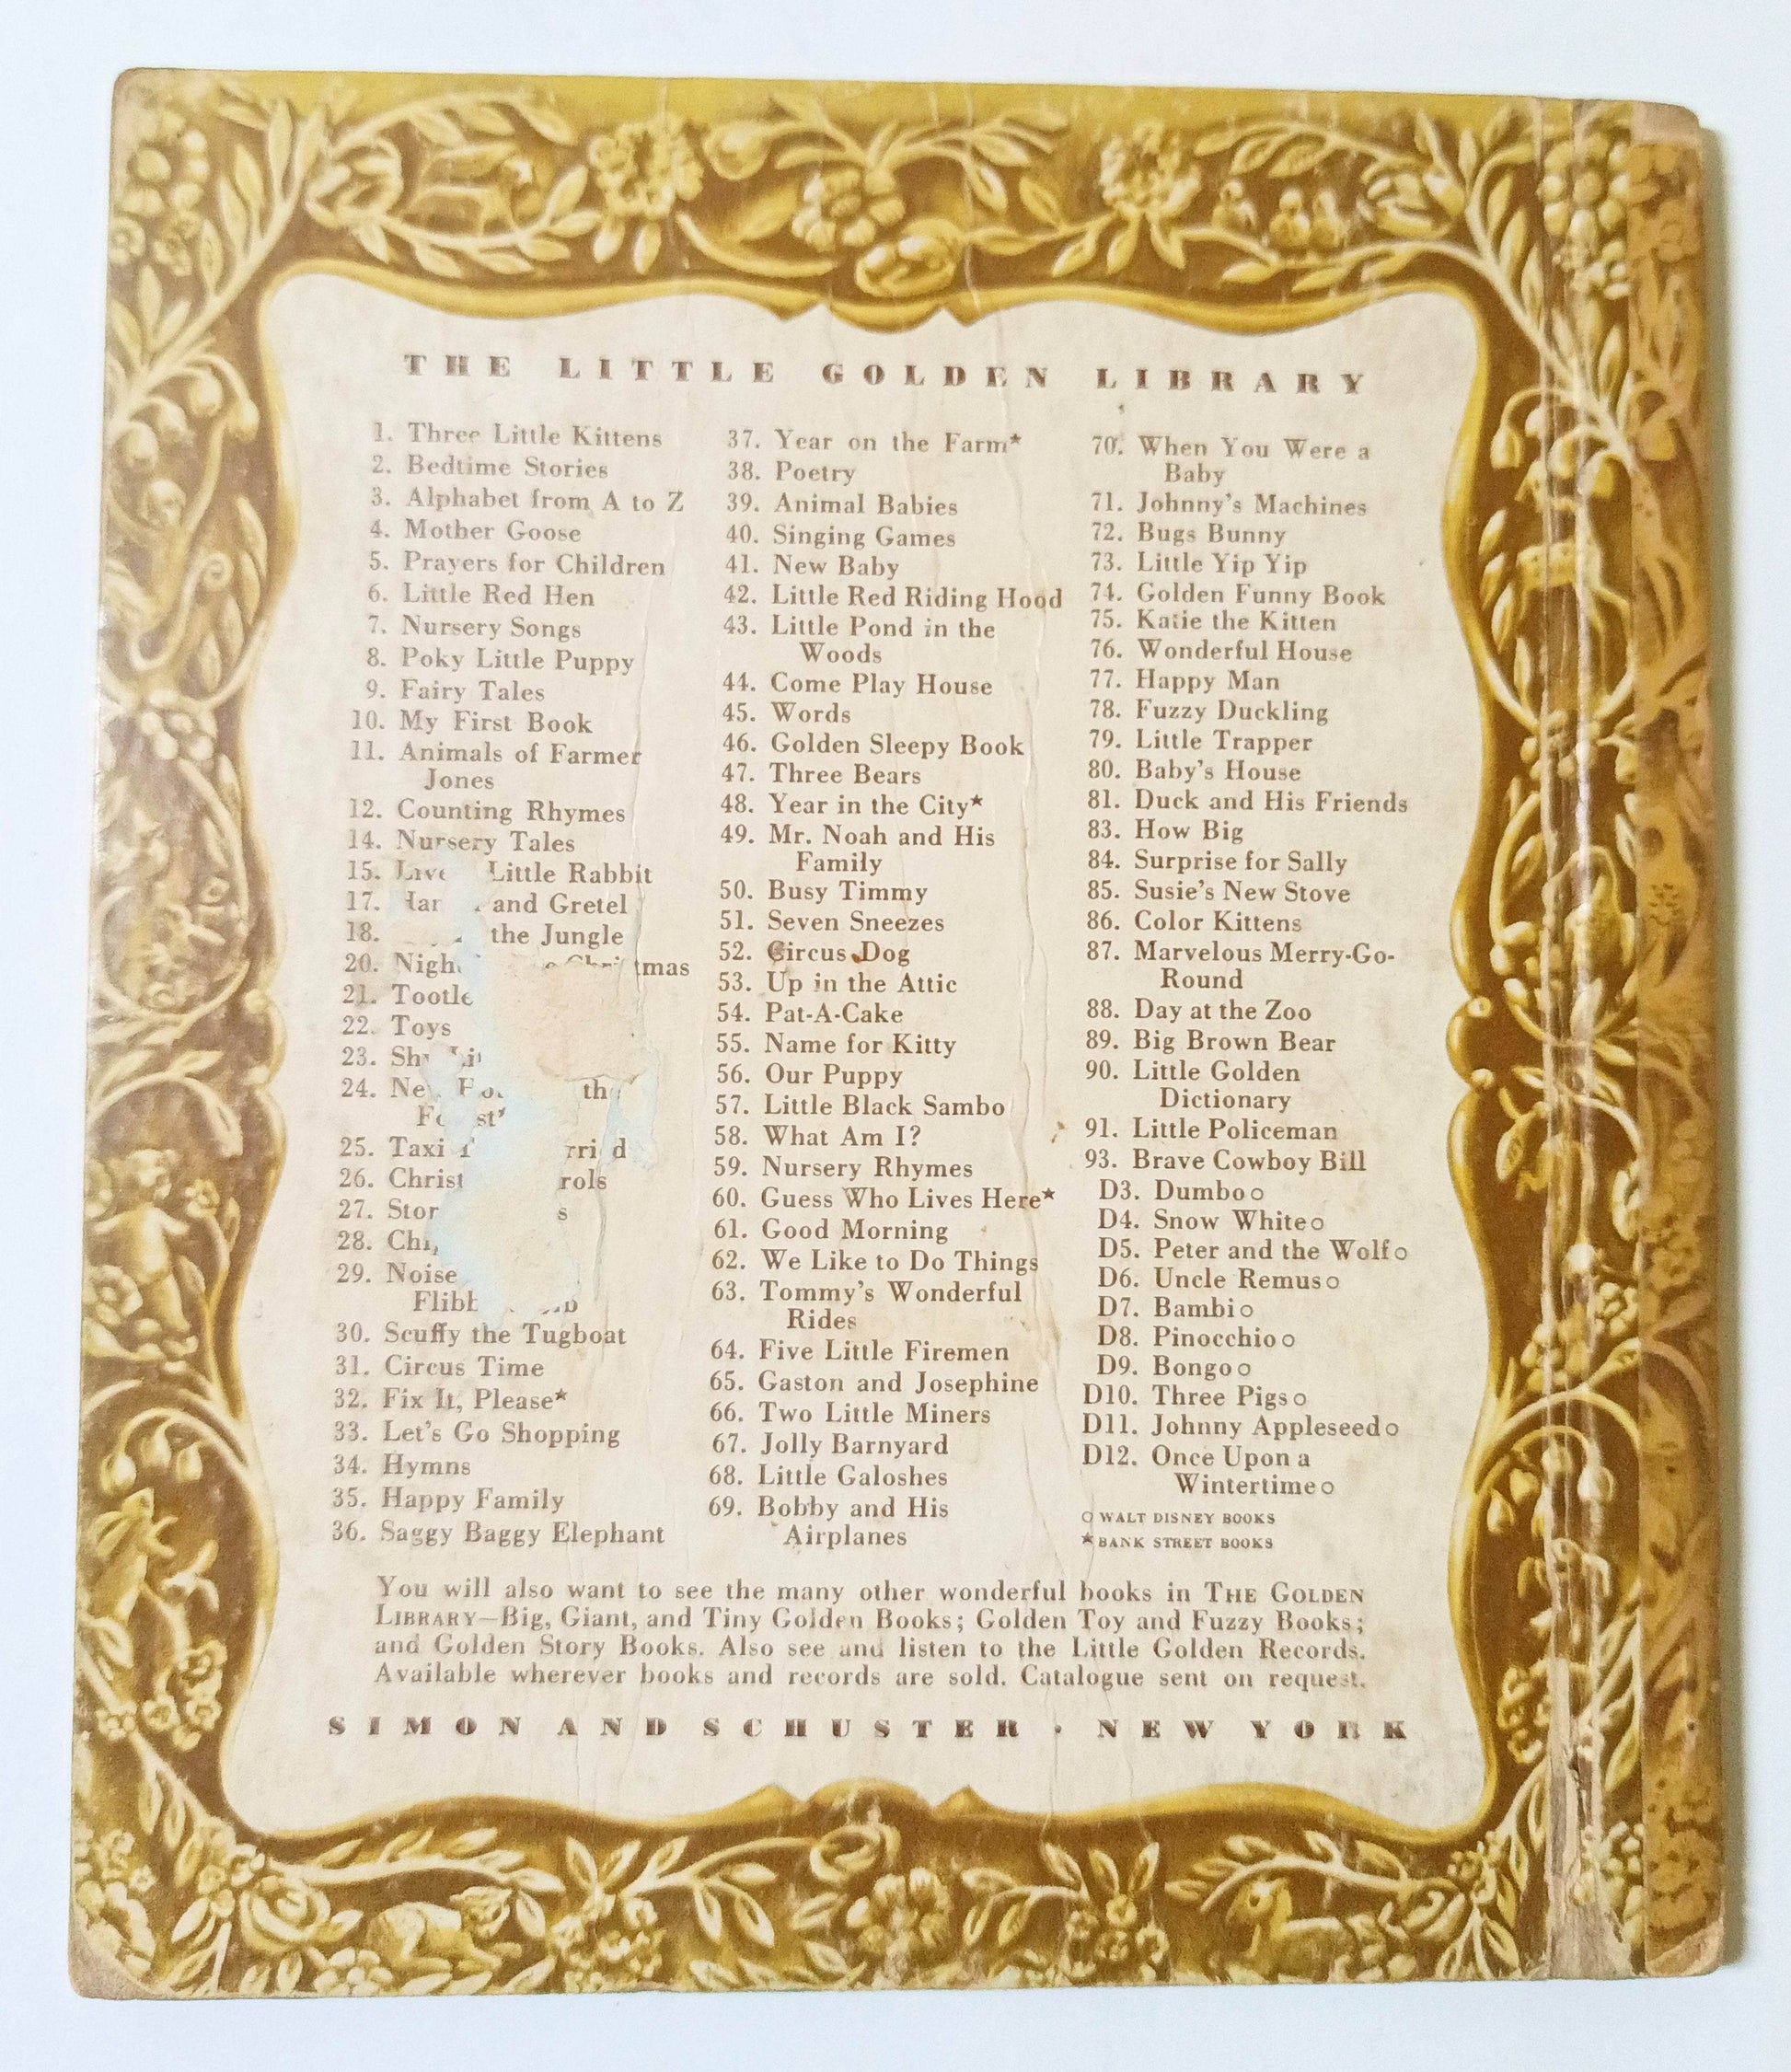 THE LITTLE GOLDEN LIBRARY
1. Three Little Kittens
2. Bedtime Stories
3. Alphabet from A to Z
4. Mother Goose
5. Prayers for Children
6. Little Red Hen
7. Nursery Songs
8. Poky Little Puppy
9. Fairy Tales
10. My First Book
11. Animals of Farmer
Jones
12. Counting Rhymes
14. Nursery Tales
15. Little Rabbit
17. and Gretel
18. the Jungle
20.
21. Tootle
22. Toys
23.
24. the
25. Taxi
26.
27.
28.
29. Noise
30. Scuffy the Tugboat
31. Circus Time
32. Fix It, Please★
33. Let's Go Shopping
34. Hymns
35. Happy Family
36. Saggy Baggy Elephant
37. Year on the Farm★
38. Poetry
39. Animal Babies
40. Singing Games
41. New Baby
42. Little Red Riding Hood
43. Little Pond in the
Woods
44. Come Play House
45. Words
46. Golden Sleepy Book
47. Three Bears
48. Year in the City★
49. Mr. Noah and His
Family
50. Busy Timmy
51. Seven Sneezes
52. Circus Dog
53. Up in the Attic
54. Pat-A-Cake
55. Name for Kitty
56. Our Puppy
57. Little Black Sambo
58. What Am I?
59. Nursery Rhymes
60. Guess Who Lives Here★
61. Good Morning
62. We Like to Do Things
63. Tommy's Wonderful
Rides
64. Five Little Firemen
65. Gaston and Josephine
66. Two Little Miners
67. Jolly Barnyard
68. Little Galoshes
69. Bobby and His
Airplanes
70. When You Were a
Baby
71. Johnny's Machines
72. Bugs Bunny
73. Little Yip Yip
74. Golden Funny Book
75. Katie the Kitten
76. Wonderful House
77. Happy Man
78. Fuzzy Duckling
79. Little Trapper
80. Baby's House
81. Duck and His Friends
83. How Big
84. Surprise for Sally
85. Susie's New Stove
86. Color Kittens
87. Marvelous Merry-Go-
Round
88. Day at the Zoo
89. Big Brown Bear
90. Little Golden
Dictionary
91. Little Policeman
93. Brave Cowboy Bill
D3. Dumbo○
D4. Snow White○
D5. Peter and the Wolf○
D6. Uncle Remus○
D7. Bambi○
D8. Pinocchio○
D9. Bongo○
D10. Three Pigs○
D11. Johnny Appleseed○
D12. Once Upon a
Wintertime○
○ WALT DISNEY BOOKS
★ BANK STREET BOOKS
You will also want to see the many other wonderful books in THE GOLDEN
LIBRARY—Big, Giant, and Tiny Golden Books; Golden Toy and Fuzzy Books;
and Golden Story Books. Also see and listen to the Little Golden Records.
Available wherever books and records are sold. Catalogue sent on request.
SIMON AND SCHUSTER · NEW YORK